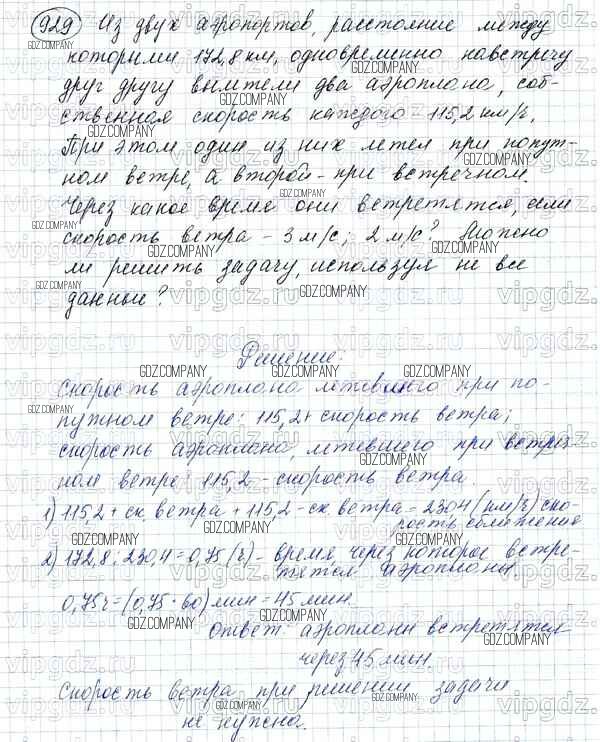 929 Из двух аэропортов, расстояние между
которыми 172,8 км, одновременно навстречу
друг другу вылетели два аэроплана, соб-
ственная скорость каждого - 115,2 км/ч.
При этом один из них летел при попут-
ном ветре, а второй - при встречном.
Через какое время они встретятся, если
скорость ветра - 3 м/с; 2 м/с? Можно
ли решить задачу, используя не все
данные?
Решение:
Скорость аэроплана летевшего при по-
путном ветре: 115,2 + скорость ветра;
скорость аэроплана, летевшего при встреч-
ном ветре: 115,2 - скорость ветра.
1) 115,2 + ск. ветра + 115,2 - ск. ветра = 230,4 (км/ч) ско-
рость сближения
2) 172,8 : 230,4 = 0,75 (ч) - время, через которое встре-
тятся аэропланы
0,75 ч = (0,75 · 60) мин = 45 мин.
Ответ: аэропланы встретятся
через 45 мин.
Скорость ветра при решении задачи
не нужна.
GDZ.COMPANY
vipgdz.ru